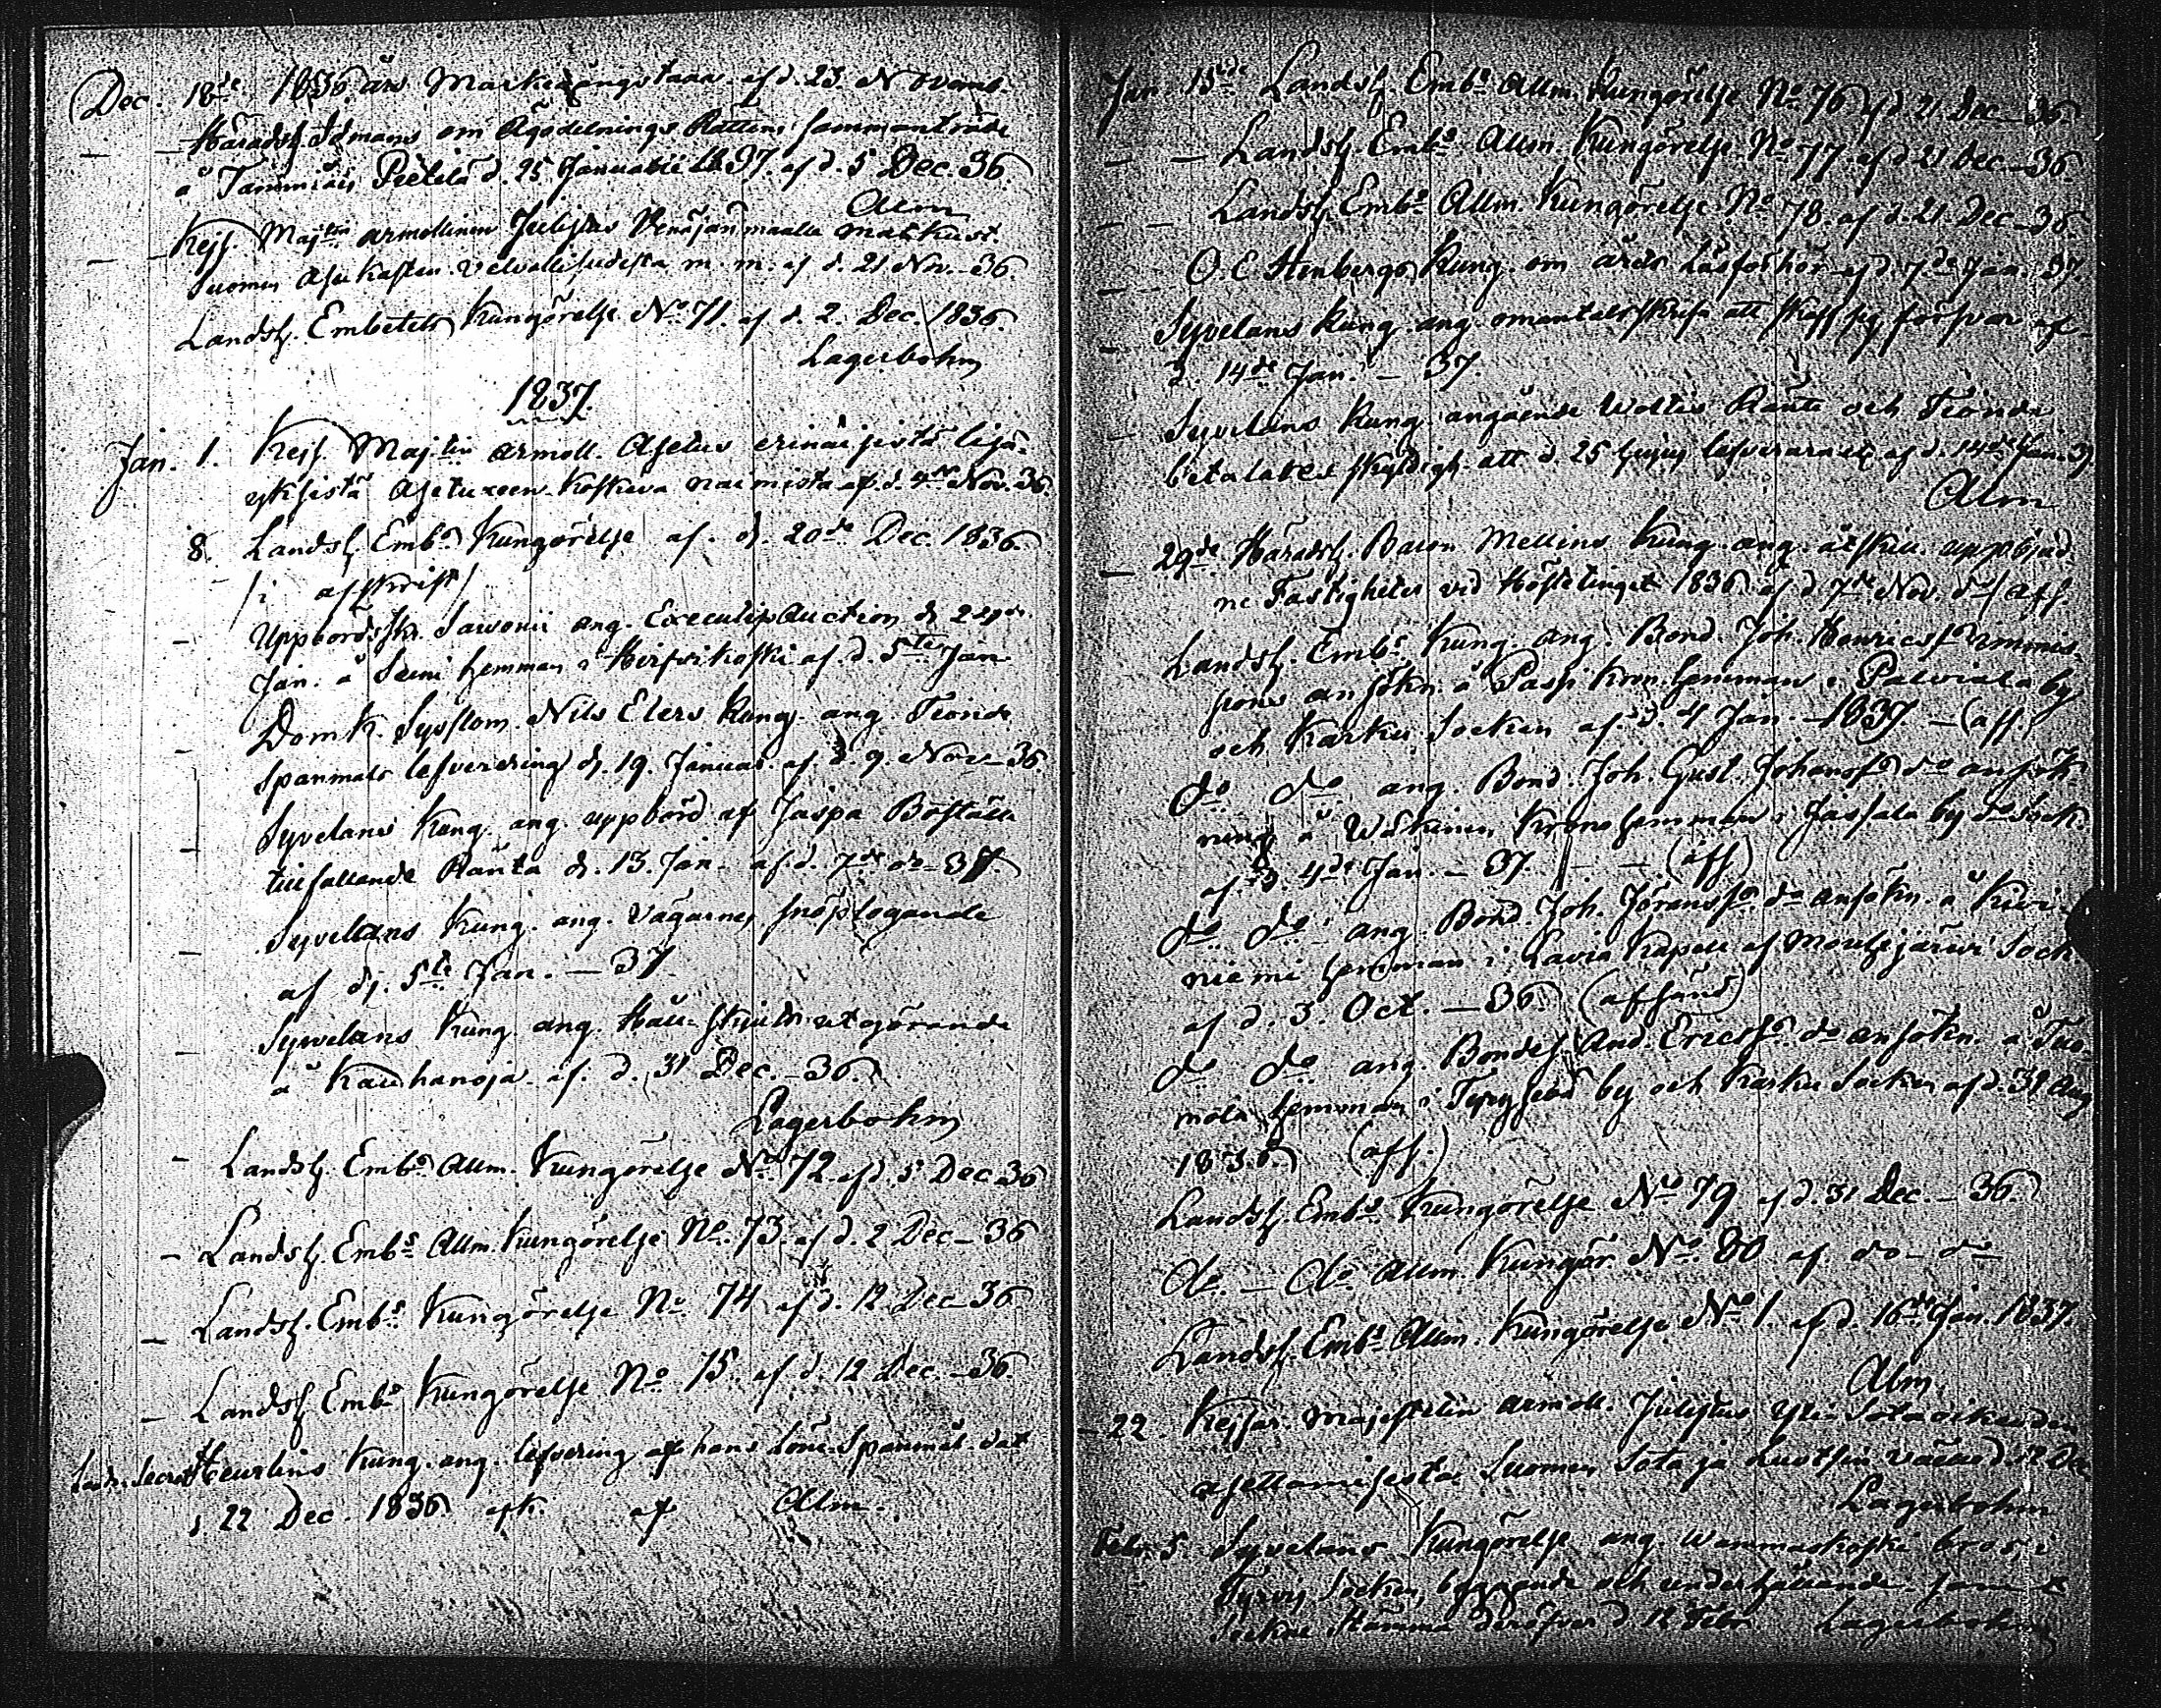 Dec. 18de 1836 års Markegångstaxa af d. 23. Novemb.
— — Häradsh. Idmans om Ägodelnings Rättens sammanträde
å Tammiais Pietilä d. 25 Januarii 1837. af d. 5 Dec. 36.
Alm
— — Kejs. Maj:tin armollinen Julistus Venäjän maalla matkust.
Suomen Asukasten velvollisudesta m. m. af d. 21 Nov. - 36.
Landsh. Embetets Kungörelse No. 71. af d. 2. Dec. 1836.
Lagerbohm
1837.
Jan. 1. Kejs. Maj:tin armoll. Asetus erinäisistä lisä-
yksistä Asetuxeen koskeva naimista af d. 4de Nov. 36.
8. Landsh. Embs Kungörelse af d. 20de Dec. 1836.
/i afskrift/
— Uppbördsskr. Savonii ang. Executif Auction d. 24de
Jan. å Semi hemman i Hirsvikoski af d. 5te Jan.
— Domk. Syslom. Nils Elers Kung. ang. Tionde
Spanmåls lefverering d. 19. Januar. af d. 9. Nov - 36.
— Syvelans Kung. ang. uppbörd af Jaspa Boställe
tillfallande Ränta d. 13. Jan. af d. 7de dr - 37.
— Syvelans Kung. ang. vägarnes snöplogande
af d. 5te Jan. - 37.
— Syvelans Kung. ang. Håll-skjuts utgörande
å Kauhanoja af d. 31 Dec. - 36.
Lagerbohm
— Landsh. Embs Allm. Kungörelse No. 72 af d. 5 Dec - 36
— Landsh. Embs Allm. Kungörelse No. 73. af d. 2 Dec - 36
— Landsh. Embs Kungörelse No. 74 af d. 12 Dec - 36
— Landsh. Embs Kungörelse No. 75. af d. 12 Dec. - 36.
Heurlins Kung. ang. lefvering af hans Löne-Spanmål dat
22 Dec. 1836. afk. af Alm.
Jan. 15de Landsh. Embs Allm. Kungörelse No. 76 af d. 21. Dec - 36
— — Landsh. Embs Allm. Kungörelse No. 77. af d. 21 Dec. - 36.
— — Landsh. Embs Allm. Kungörelse No. 78. af d. 21. Dec - 36
— O. E. Stenbergs Kung. om årets Läsförhör af d. 7de Jan. 37.
— Syvelans Kung. ang. omantalsskrifn att skaff sig försvar af
d. 14de Jan. - 37.
— Syvelans Kung. angående Woltis Ränte och Tionde
betalares skyldigh. att d. 25 hujus lefverara etc af d. 14de Jan. 37
Alm
— 29de Häradsh. Baron Mellins Kung. ang. åtskill. uppbjud-
ne Fastigheter vid Hösttinget 1836 af d. 7de Nov. do / afs.
Landsh. Embs Kung. ang. Bond. Joh. Henricss
sons ansökn. å Passi Kron. hemman i Palviala by
och Karku Socken af d. 4 Jan. - 1837. - (afs.)
do do ang. Bond. Joh. Gust. Johanss. do ansök-
ning å Wäkinen Kronohemman i Jassala by do Sock.
af d. 4de Jan. - 37. - - (afs)
do do ang. Bond. Joh. Jöranss. do ansökn. å Kivi-
niemi hemman i Lavia Kapell af Mouhijärvi Sock
af d. 3. Oct. - 36. (afsänd)
do do ang. Bonden And. Ericss. do ansökn. å Tuo-
mola hemman i by och Karku Socken af d. 31 Aug
1836. (afs.)
Landsh. Embs Kungörelse No 79 af d. 31 Dec. - 36.
do - do Allm. Kungör. No. 80 af do - do
Landsh. Embs Allm. Kungörelse No 1. af d. 16de Jan. 1837.
Alm.
— 22. Kejsar. Majestetin armoll. Julistus Yli-Sotaoikeuden
asettamisesta Suomen Sota ja Luotsin väelle d. 12 Dec
Lagerbohm
Febr. 5. Syvelans Kungörelse ang. Wammaskoski bros i
Tyrvis Socken byggande och underhållande samt
Sockne Stämma deröfver d. 12 Febr. Lagerbohm